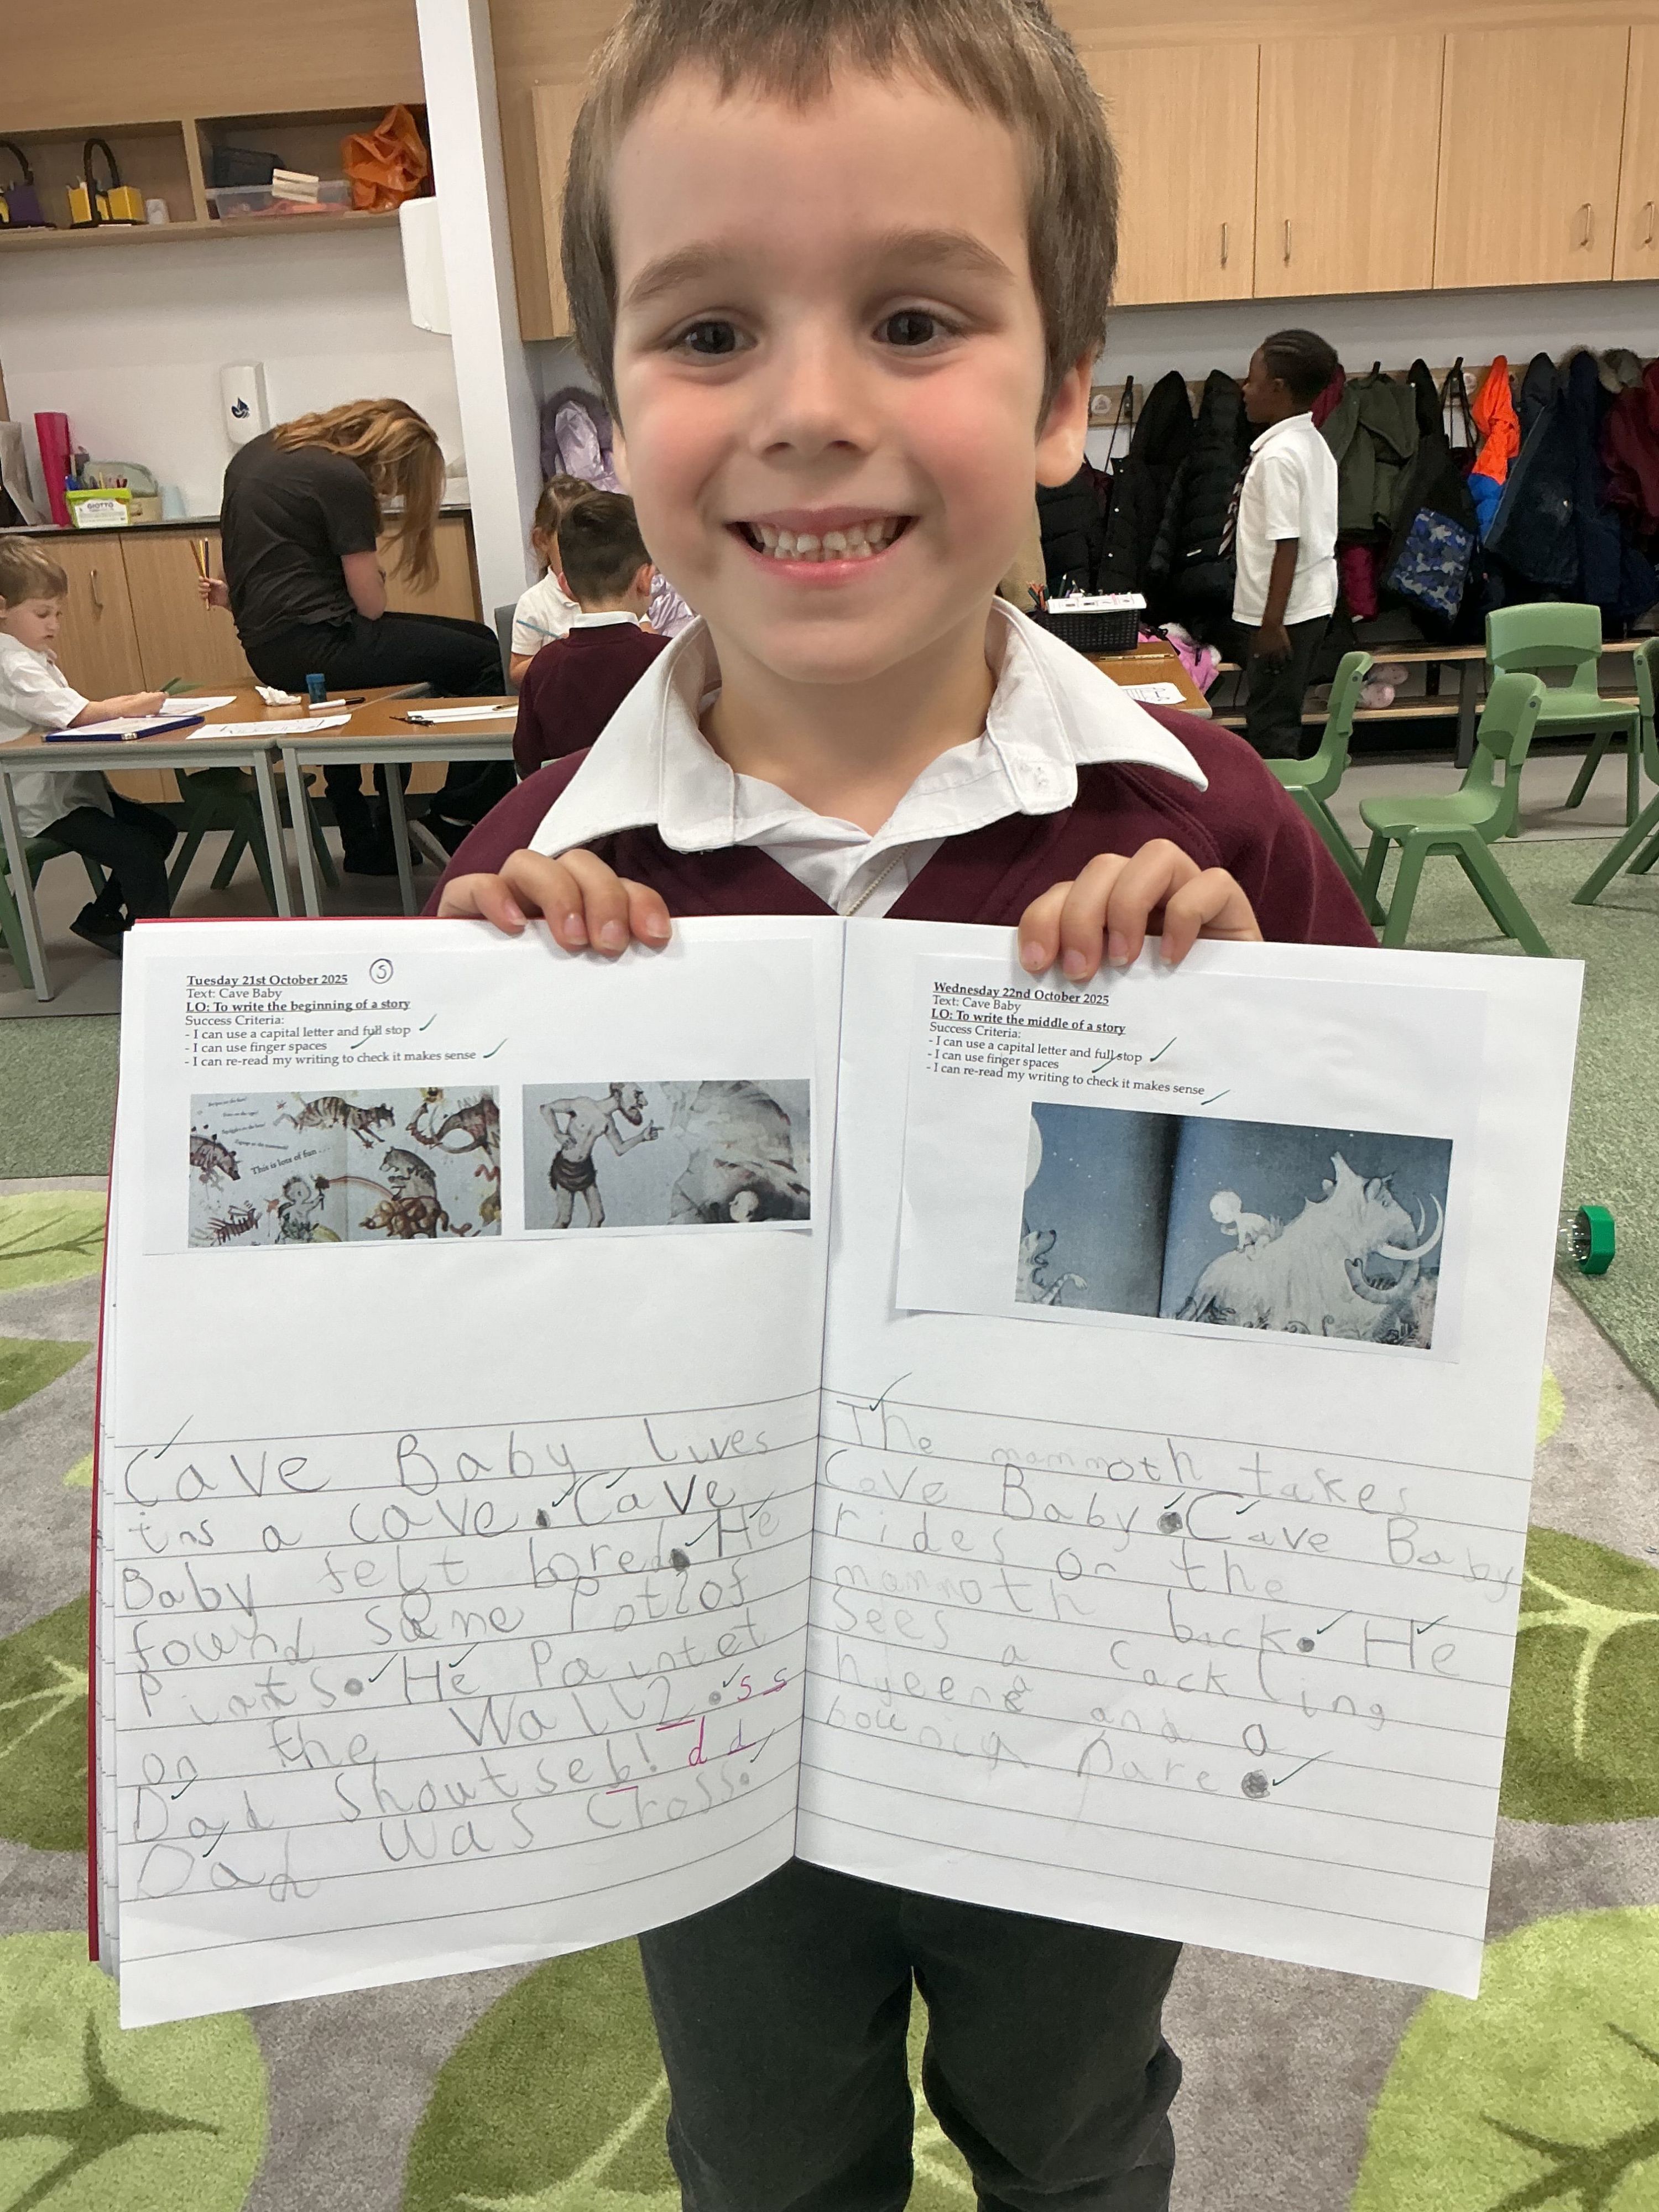 Tuesday 21st October 2025 S
Text: Cave Baby
LO: To write the beginning of a story
Success Criteria:
- I can use a capital letter and full stop
- I can use finger spaces
- I can re-read my writing to check it makes sense
This is lots of fun...
Cave Baby lives
in a cave. Cave
Baby felt bored. He
found some Pot of
Pints. He Paintet
on the Wall . s s
Dad shoutseb! d d
Dad was Cross.
Wednesday 22nd October 2025
Text: Cave Baby
LO: To write the middle of a story
Success Criteria:
- I can use a capital letter and full stop
- I can use finger spaces
- I can re-read my writing to check it makes sense
The mammoth takes
Cave Baby. Cave Baby
rides on the
mammoth back. He
Sees a cackling
hyeena and a
Dare.
GIOTTO